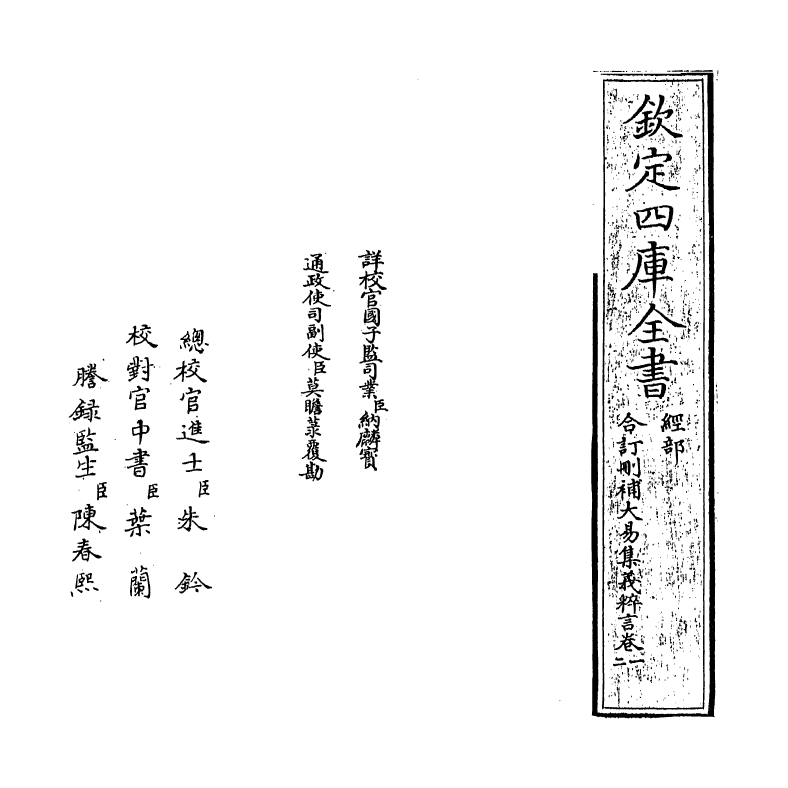 欽定四庫全書
經部
合訂刪補大易集義粹言卷一
二
詳校官國子監司業臣納麟寶
通政使司副使臣莫瞻菉覆勘
總校官進士臣朱鈐
校對官中書臣葉蘭
謄録監生臣陳春熙